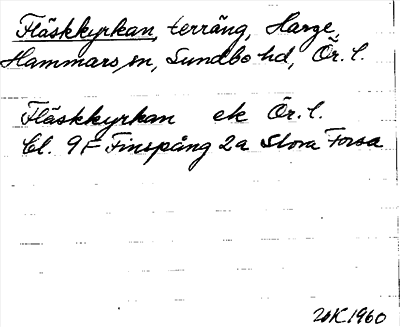 Fläskkyrkan, terräng, Harge,
Hammars sn, Sundbo hd, Ör. l.
Fläskkyrkan ek Ör. l.
Bl. 9F Finspång 2a Stora Forsa
1960